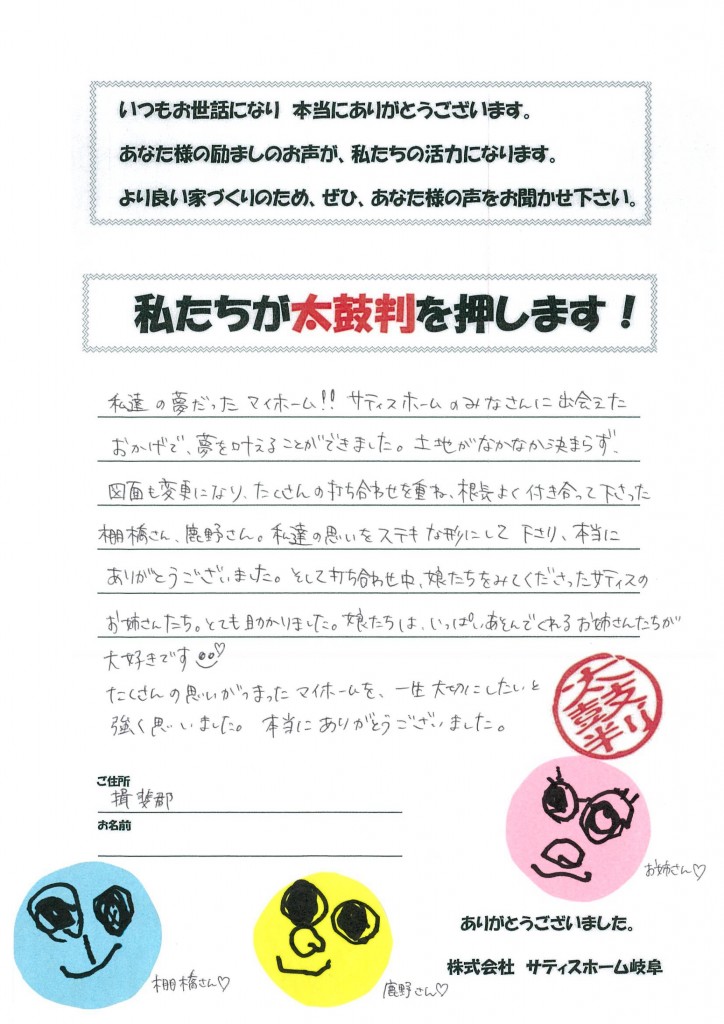 いつもお世話になり 本当にありがとうございます。
あなた様の励ましのお声が、私たちの活力になります。
より良い家づくりのため、ぜひ、あなた様の声をお聞かせ下さい。
私たちが太鼓判を押します！
私達の夢だったマイホーム!! サティスホームのみなさんに出会えた
おかげで、夢を叶えることができました。土地がなかなか決まらず、
図面も変更になり、たくさんの打ち合わせを重ね、根長よく付き合って下さった
棚橋さん、鹿野さん。私達の思いをステキな形にして下さり、本当に
ありがとうございました。そして打ち合わせ中、娘たちをみてくださったサティスの
お姉さんたち。とても助かりました。娘たちは、いっぱいあそんでくれるお姉さんたちが
大好きです♡
たくさんの思いがつまったマイホームを、一生大切にしたいと
強く思いました。 本当にありがとうございました。
太鼓判
ご住所
揖斐郡
お名前
お姉さん♡
棚橋さん♡
鹿野さん♡
ありがとうございました。
株式会社 サティスホーム岐阜